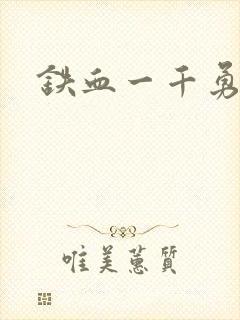 鉄血一千勇
唯美蕙質